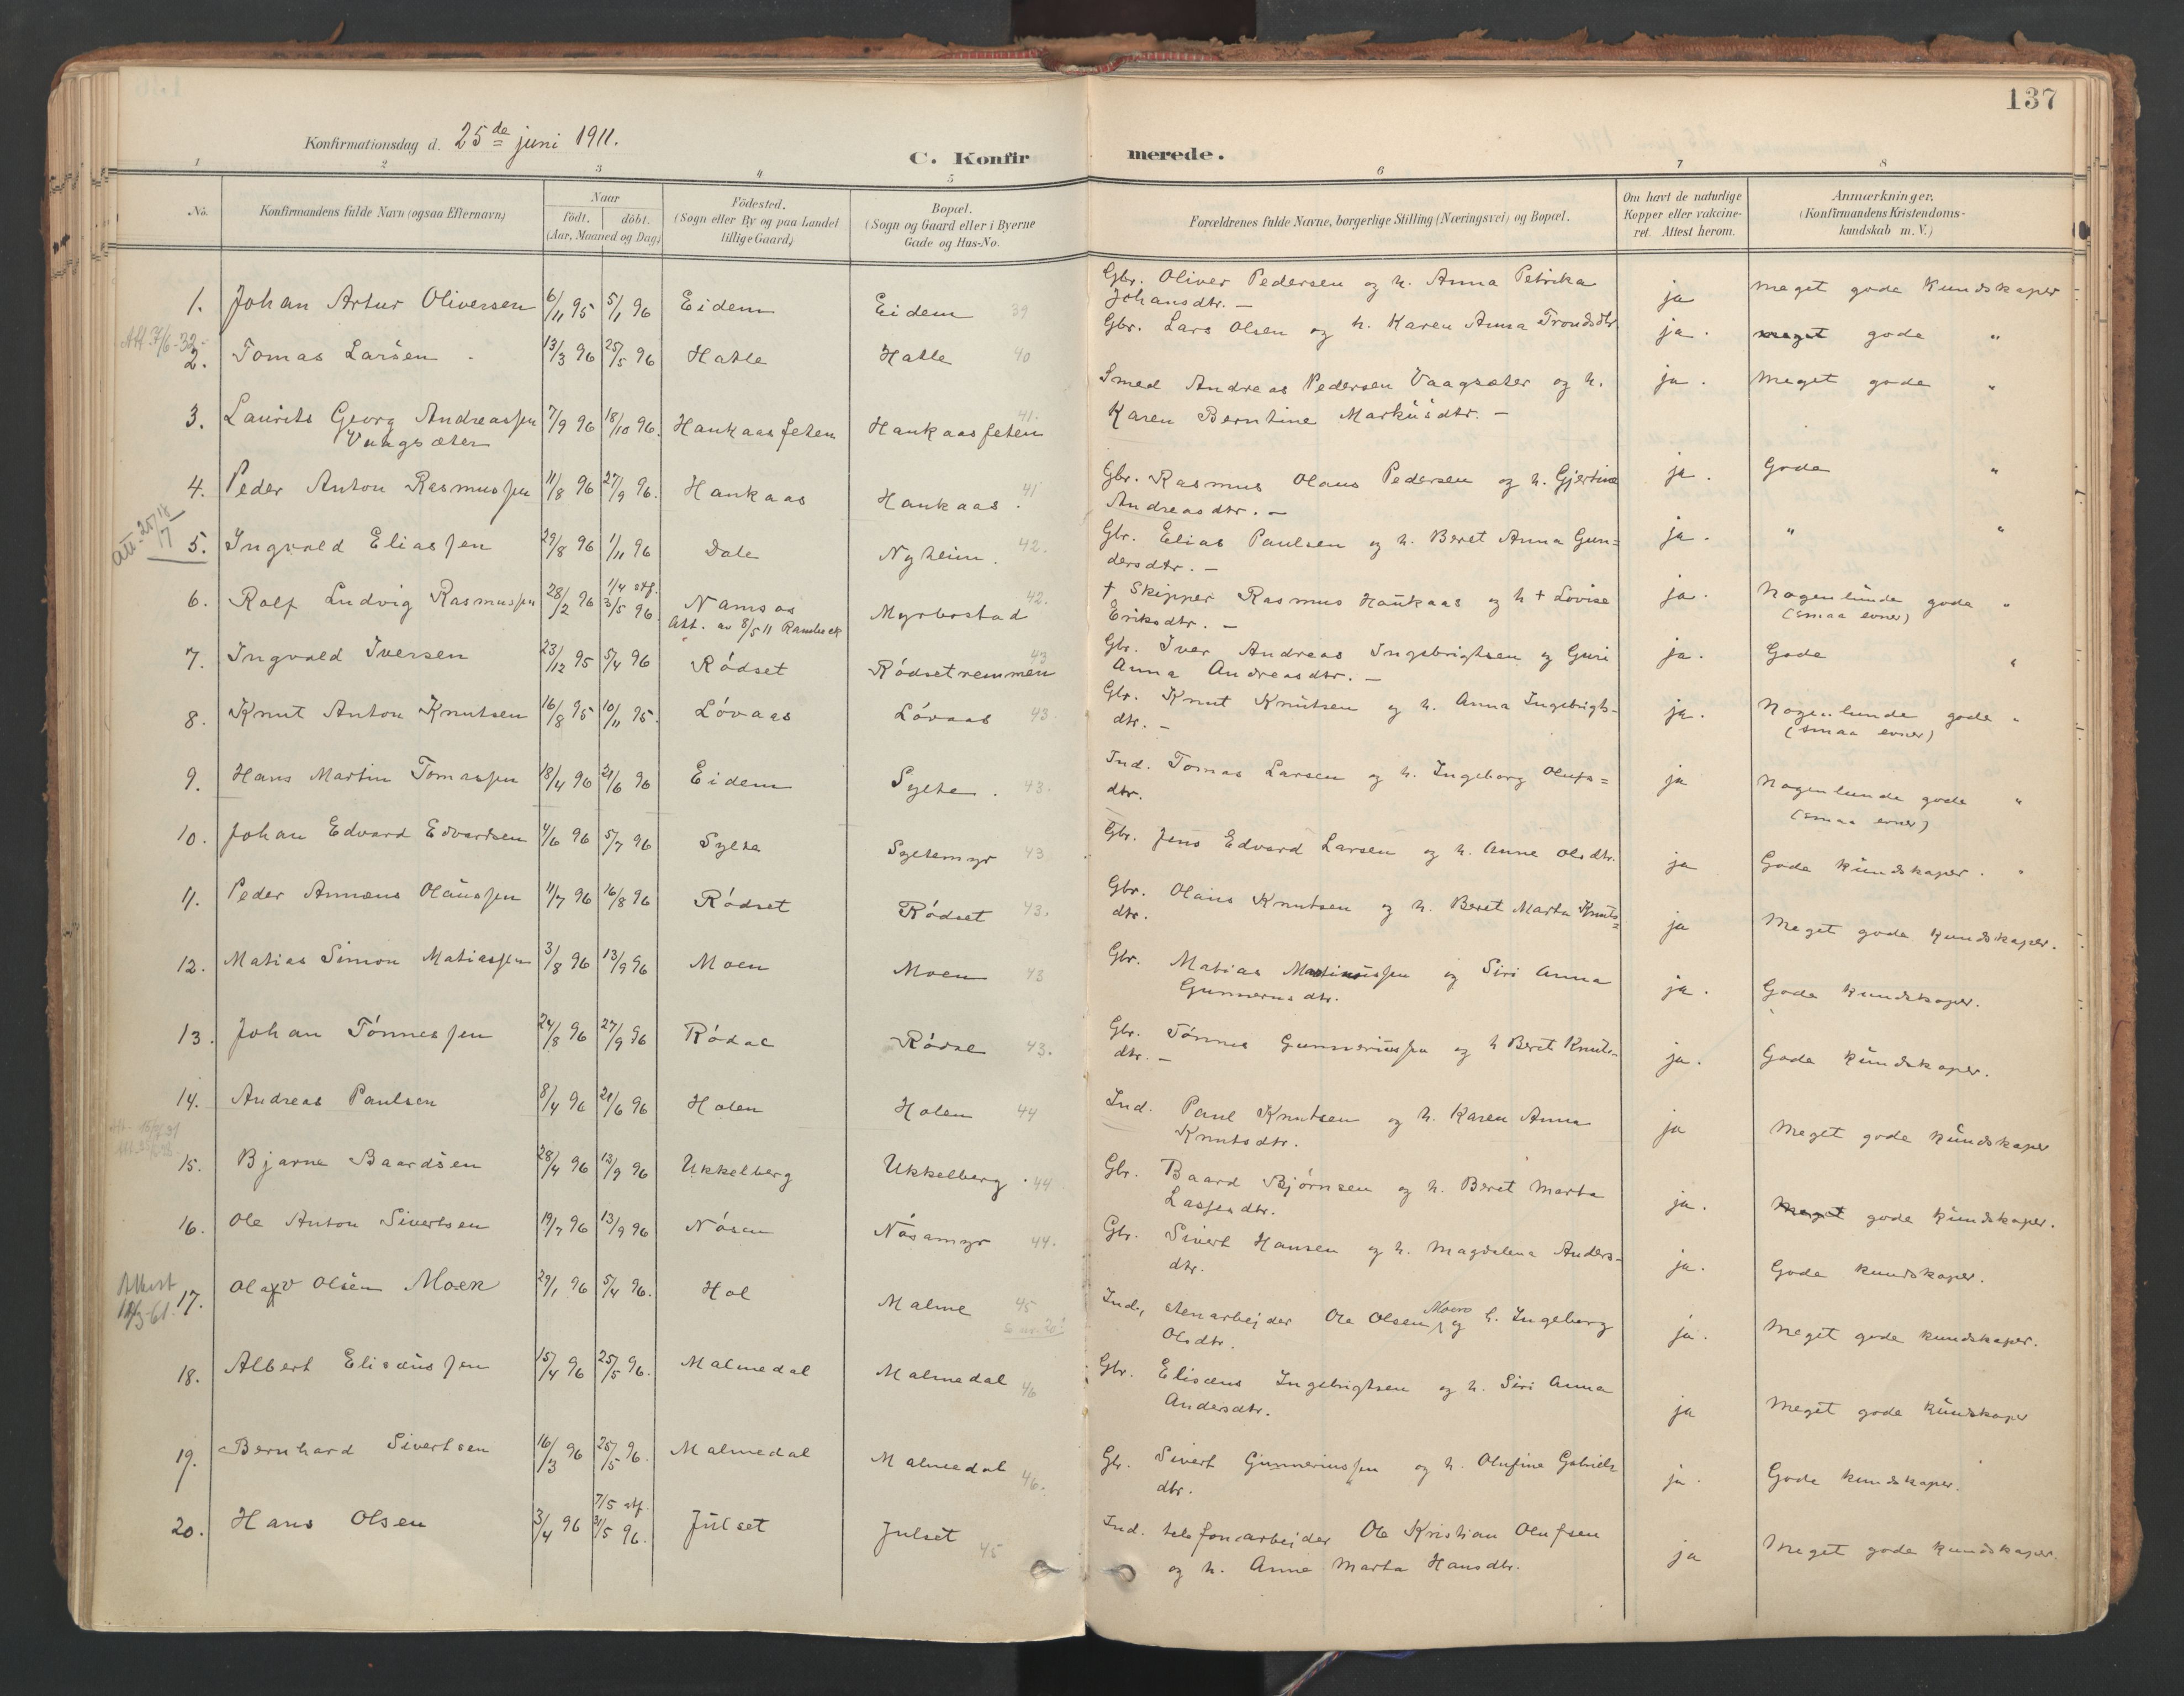 137
Konfirmationsdag d. 25de juni 1911.
C. Konfirmerede.
1 2 3 4 5 6 7 8
No. Konfirmandens fulde Navn (ogsaa Efternavn) Naar født. døbt. (Aar, Maaned og Dag) Fødested. (Sogn eller By og paa Landet tillige Gaard) Bopæl. (Sogn og Gaard eller i Byerne Gade og Hus-No. Forældrenes fulde Navne, borgerlige Stilling (Næringsvei) og Bopæl. Om havt de naturlige Kopper eller vakcineret. Attest herom. Anmærkninger. (Konfirmandens Kristendomskundskab m. V.)
1. Johan Artur Oliversen 6/11 95 5/1 96 Eidem Eidem 39 Gbr. Oliver Pedersen og h. Anna Petrika ja meget gode kundskaper
Johansdtr. –
Att 7/6-32-
2. Tomas Larsen 13/3 96 25/5 96 Hatle Hatle 40 Gbr. Lars Olsen og h. Karen Anna Trondsdtr. ja. meget gode "
3. Laurits Georg Andreassen 7/9 96 18/10 96. Haukaasjeten Haukaasjeten 41. Smed Andreas Pedersen Vaagsæter og h. ja. Meget gode "
Vaagsæter Karen Berntine Markusdtr. –
4. Peder Anton Rasmussen 11/8 96 27/9 96. Haukaas Haukaas. 41 Gbr. Rasmus Olaus Pedersen og h. Gjertine ja. Gode "
Andreasdtr. –
5. Ingvald Eliassen 29/8 96 1/11 96 Dale Nyheim. 42. Gbr. Elias Paulsen og h. Beret Anna Gun= ja. " "
dersdtr. –
6. Rolf Ludvig Rasmussen 28/2 96 1/4 stf. 3/5 96 Namsos Myrbostad 42. † Skipper Rasmus Haukaas og h † Lovise ja. Nogenlunde gode "
Att. av 8/5 11 Eriksdtr. – (smaa evner)
7. Ingvald Iversen 23/12 95 5/4 96 Rødset Rødsetremmen 43 Gbr. Iver Andreas Ingebrigtsen og Guri ja. Gode "
Anna Andreasdtr. –
8. Knut Anton Knutsen 16/8 95 10/11 95. Løvaas Løvaas 43. Gbr. Knut Knutsen og h. Anna Ingebrigts- ja. Nogenlunde gode "
dtr. – (smaa evner)
9. Hans Martin Tomassen 18/4 96 21/6 96 Eidem Sylte. 43. Ind. Tomas Larsen og h. Ingeborg Olufs= ja Nogenlunde gode "
dtr. (smaa evner)
10. Johan Edvard Edvardsen 4/6 96 5/7 96 Sylte Syltemyr 43 Gbr. Jens Edvard Larsen og h. Anne Olsdtr. ja Gode kundskaper. "
11. Peder Annæus Olaussen 11/7 96 16/8 96 Rødset Rødset 43. Gbr. Olaus Knutsen og h. Beret Marta Knuts= ja Meget gode kundskaper.
dtr.
12. Matias Simon Matiassen 3/8 96 13/9 96 Moen Moen 43 Gbr. Matias Martinussen og Siri Anna ja. Gode kundskaper.
Gunnerusdtr.
13. Johan Tønnessen 24/8 96 27/9 96 Rødal Rødal 43. Gbr. Tønnes Gunneriussen og h Beret Knuts- ja. Gode kundskaper.
dtr. –
14. Andreas Paulsen 8/4 96 21/6 96 Holen Holen 44 Ind. Paul Knutsen og h. Karen Anna ja Meget gode kundskaper
Knutsdtr.
15. Bjarne Baardsen 28/4 96 13/9 96 Ukkelberg Ukkelberg. 44 Gbr. Baard Bjørnsen og h. Beret Marta ja. Meget gode kundskaper.
Lassesdtr.
16. Ole Anton Sivertsen 19/7 96 13/9 96 Nåsen Nåsamyr 44. Gbr. Sivert Hansen og h. Magdalena Anders- ja. Gode kundskaper.
dtr.
Attest
17. Olav Olsen Moen 29/1 96 5/4 96. Hol Malme 45 Ind., stenarbejder Ole Olsen Moen og h. Ingeborg ja. Meget gode kundskaper.
Olsdtr.
18. Albert Elisæussen 15/4 96 25/5 96. Malmedal Malmedal 46 Gbr. Elisæus Ingebrigtsen og h. Siri Anna ja Meget gode kundskaper
Andersdtr.
19. Bernhard Sivertsen 16/3 96 25/5 96. Malmedal Malmedal 46. Gbr. Sivert Gunneriussen og h. Olufine Gabriels ja. Gode kundskaper.
dtr.
20. Hans Olsen 3/4 96 7/5 stf. 31/5 96. Julset Julset 45 Ind. telefonarbejder Ole Kristian Olufsen ja Meget gode kundskaper.
og h. Anne Marta Hansdtr.